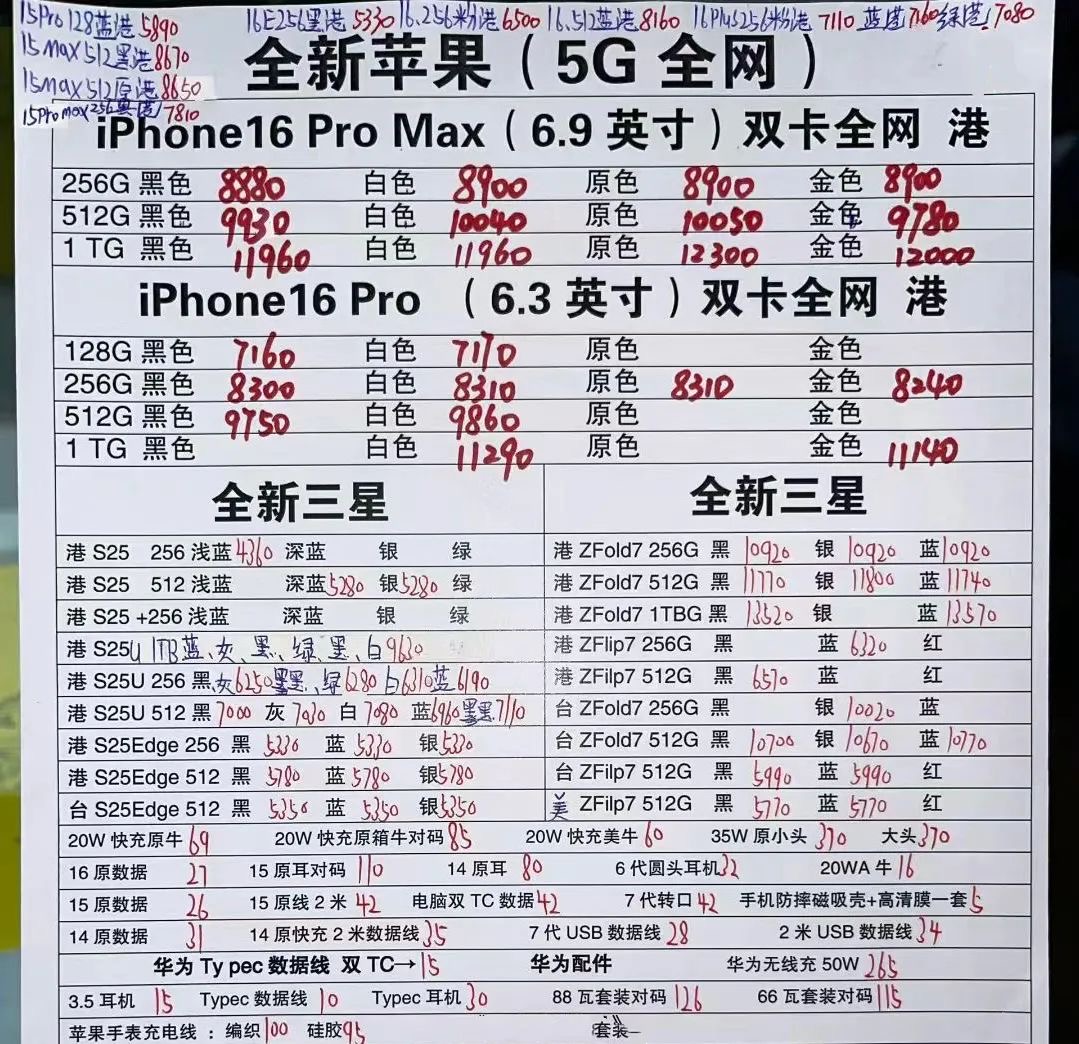 15Pro 128蓝港 5890 16E256黑港 5330 16.256粉港 6500 16.512蓝港 8160 16Plus256粉港 7110 蓝港 7160 绿港 7080
15max 512黑港 8670
15max 512原港 8650
15Pro max 256黑港 7810
全新苹果（5G 全网）
iPhone16 Pro Max（6.9 英寸）双卡全网 港
256G 黑色 8880 白色 8900 原色 8900 金色 8900
512G 黑色 9930 白色 10040 原色 10050 金色 9780
1 TG 黑色 11960 白色 11960 原色 12300 金色 12000
iPhone16 Pro （6.3 英寸）双卡全网 港
128G 黑色 7160 白色 7170 原色 金色
256G 黑色 8300 白色 8310 原色 8310 金色 8240
512G 黑色 9750 白色 9860 原色 金色
1 TG 黑色 白色 11290 原色 金色 11140
全新三星
港 S25 256 浅蓝 4360 深蓝 银 绿
港 S25 512 浅蓝 深蓝 5280 银 5280 绿
港 S25 +256 浅蓝 深蓝 银 绿
港 S25U 1TB 蓝、灰、黑、绿、墨、白 9630
港 S25U 256 黑、灰 6250 墨黑、绿 6280 白 6310 蓝 6190
港 S25U 512 黑 7000 灰 7030 白 7080 蓝 6960 墨黑 7110
港 S25Edge 256 黑 5330 蓝 5330 银 5330
港 S25Edge 512 黑 5780 蓝 5780 银 5780
台 S25Edge 512 黑 5350 蓝 5350 银 5350
全新三星
港 ZFold7 256G 黑 10920 银 10920 蓝 10920
港 ZFold7 512G 黑 11770 银 11800 蓝 11740
港 ZFold7 1TBG 黑 13520 银 蓝 13570
港 ZFlip7 256G 黑 蓝 6320 红
港 ZFilp7 512G 黑 6570 蓝 红
台 ZFold7 256G 黑 银 10020 蓝
台 ZFold7 512G 黑 10700 银 10670 蓝 10770
台 ZFilp7 512G 黑 5990 蓝 5990 红
美 ZFilp7 512G 黑 5770 蓝 5770 红
20W 快充原牛 69 20W 快充原箱牛对码 85 20W 快充美牛 60 35W 原小头 370 大头 370
16 原数据 27 15 原耳对码 110 14 原耳 80 6 代圆头耳机 32 20WA 牛 16
15 原数据 26 15 原线 2 米 42 电脑双 TC 数据 42 7 代转口 42 手机防摔磁吸壳+高清膜一套 5
14 原数据 31 14 原快充 2 米数据线 35 7 代 USB 数据线 28 2 米 USB 数据线 34
华为 Ty pec 数据线 双 TC→ 15 华为配件 华为无线充 50W 265
3.5 耳机 15 Typec 数据线 10 Typec 耳机 30 88 瓦套装对码 126 66 瓦套装对码 115
苹果手表充电线：编织 100 硅胶 95 套装